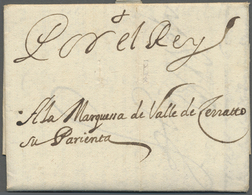 Por el Rey
A la Marquesa de Valle de Cerratto
su Parienta